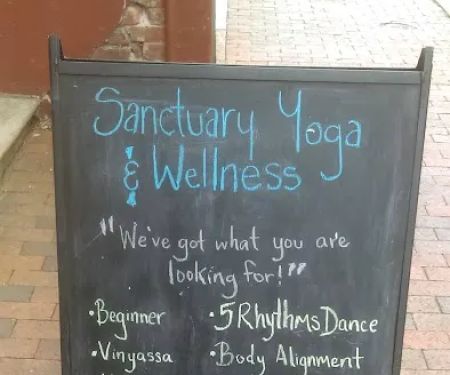 Sanctuary Yoga
& Wellness
"We've got what you are
looking for!"
•Beginner •5RhythmsDance
•Vinyassa •Body Alignment